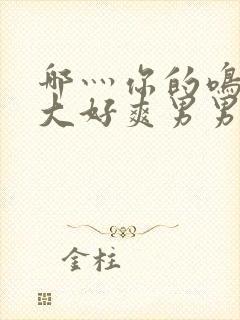 哪灬你的鸣
大好爽男男
金柱